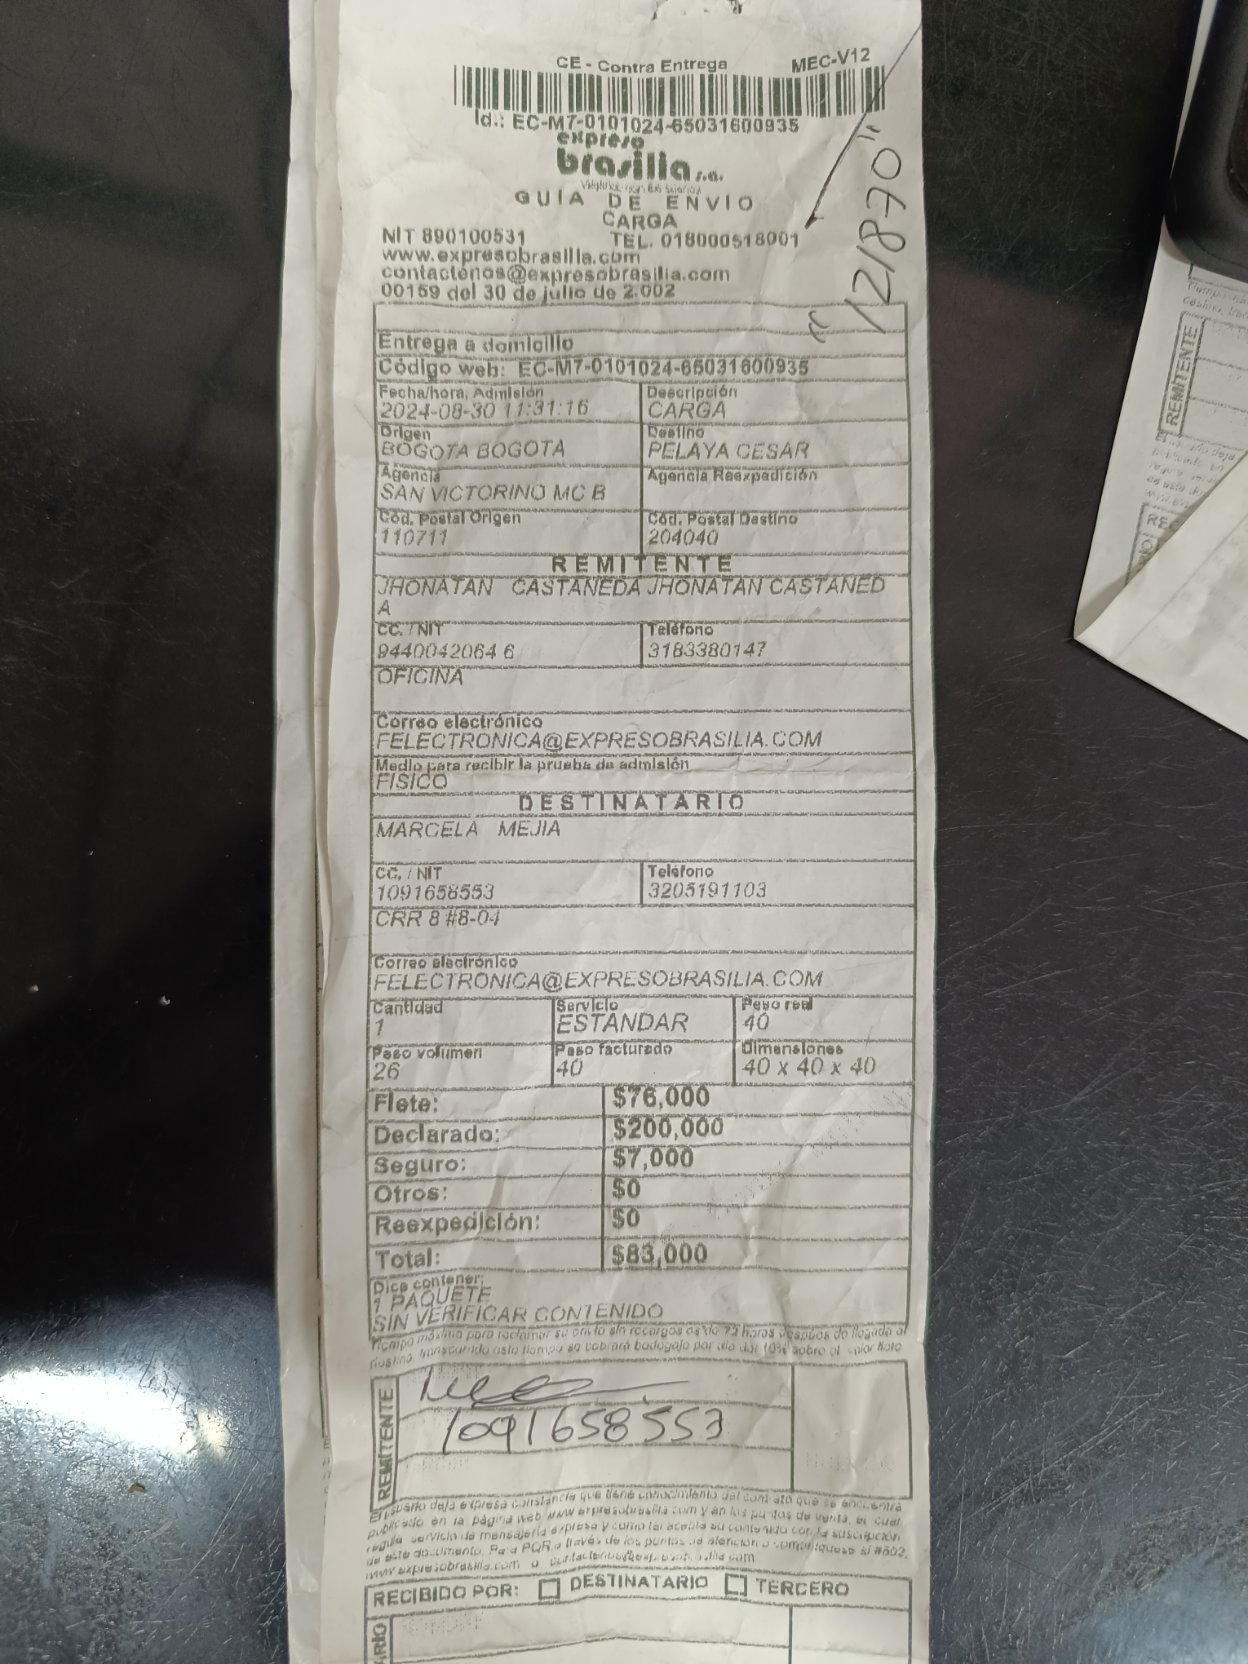 CE - Contra Entrega MEC-V12
Id.: EC-M7-0101024-65031600935
expreso
brasilia s.a.
GUIA DE ENVIO
CARGA
NIT 890100531 TEL. 018000518001
www.expresobrasilia.com
contactenos@expresobrasilia.com
00159 del 30 de julio de 2.002
"12/870"
Entrega a domicilio
Código web: EC-M7-0101024-65031600935
Fecha/hora, Admisión Descripción
2024-08-30 11:31:16 CARGA
Origen Destino
BOGOTA BOGOTA PELAYA CESAR
Agencia Agencia Reexpedición
SAN VICTORINO MC B
Cód. Postal Origen Cód. Postal Destino
110711 204040
REMITENTE
JHONATAN CASTANEDA JHONATAN CASTANED
A
CC. / NIT Teléfono
9440042064 6 3183380147
OFICINA
Correo electrónico
FELECTRONICA@EXPRESOBRASILIA.COM
Medio para recibir la prueba de admisión
FISICO
DESTINATARIO
MARCELA MEJIA
CC. / NIT Teléfono
1091658553 3205191103
CRR 8 #8-04
Correo electrónico
FELECTRONICA@EXPRESOBRASILIA.COM
Cantidad Servicio Peso real
1 ESTANDAR 40
Peso volumen Peso facturado Dimensiones
26 40 40 x 40 x 40
Flete: $76,000
Declarado: $200,000
Seguro: $7,000
Otros: $0
Reexpedición: $0
Total: $83,000
Dice contener:
1 PAQUETE
SIN VERIFICAR CONTENIDO
Tiempo máximo para reclamar su envío sin recargos es de 72 horas después de llegado al
destino, transcurrido este tiempo se cobrará bodegaje por día del 10% sobre el valor flete
REMITENTE
1091658553
El usuario deja expresa constancia que tiene conocimiento del contrato que se encuentra
publicado en la página web www.expresobrasilia.com y en los puntos de venta, el cual
regula servicio de mensajería expresa y como tal acepta su contenido con la suscripción
de este documento. Para PQR a través de los puntos de atención o comuníquese al #502,
www.expresobrasilia.com o contactenos@expresobrasilia.com
RECIBIDO POR: DESTINATARIO TERCERO
REMITENTE